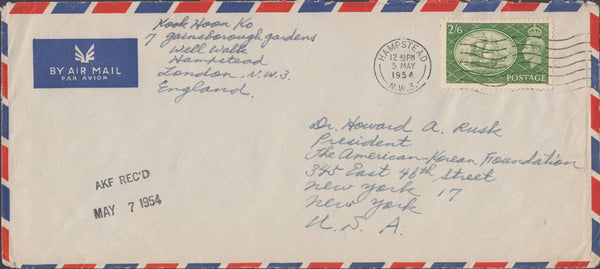 BY AIR MAIL
PAR AVION
Kook Hoon Ko
7 gainsborough gardens
Well Walk
Hampstead
London. N.W.3.
England.
HAMPSTEAD
12 45 PM
5 MAY
1954
N.W.3.
2/6
POSTAGE
Dr. Howard A. Rusk
President
The American-Korean Foundation
345 East 46th Street
New York 17
New York
U.S.A.
AKF REC'D
MAY 7 1954